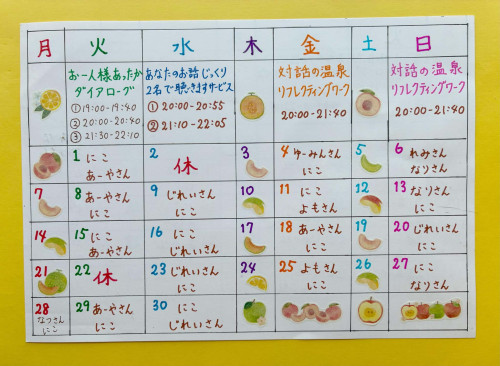 月 火 水 木 金 土 日
お一人様あったか
ダイアローグ
① 19:00-19:40
② 20:00-20:40
③ 21:30-22:10
あなたのお話じっくり
2名で聴きますサービス
① 20:00-20:55
② 21:10-22:05
対話の温泉
リフレクティングワーク
20:00-21:40
対話の温泉
リフレクティングワーク
20:00-21:40
1 にこ
あーやさん
2
休
3
4 ゆーみんさん
にこ
5
6 れみさん
なりさん
7
8 あーやさん
にこ
9 じれいさん
にこ
10
11 にこ
よもさん
12
13 なりさん
にこ
14
15 にこ
あーやさん
16 にこ
じれいさん
17
18 あーやさん
にこ
19
20 じれいさん
にこ
21
22 休
23 じれいさん
にこ
24
25 よもさん
にこ
26
27 にこ
なりさん
28
なつさん
にこ
29 あーやさん
にこ
30 にこ
じれいさん